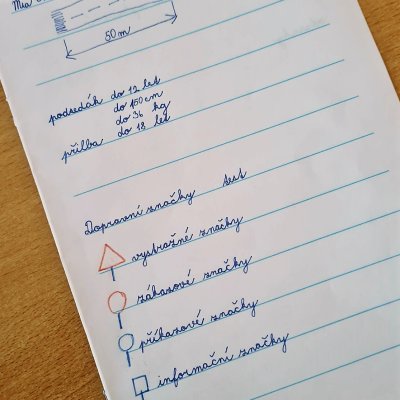 50 m
podsedák do 12 let
do 150 cm
do 36 kg
přilba do 18 let
Dopravní značky test
výstražné značky
zákazové značky
příkazové značky
informační značky